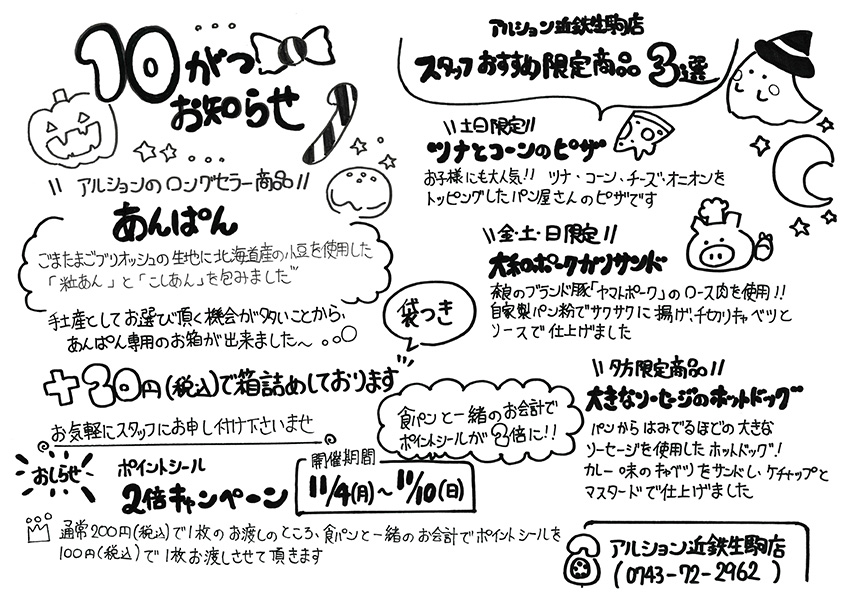 10がつ
お知らせ
\\ アルションのロングセラー商品 //
あんぱん
ごまたまごブリオッシュの生地に北海道産の小豆を使用した
「粒あん」と「こしあん」を包みました
手土産としてお選び頂く機会が多いことから、
あんぱん専用のお箱が出来ました〜
袋つき
+30円(税込)で箱詰めしております
お気軽にスタッフにお申し付け下さいませ
おしらせ
ポイントシール
2倍キャンペーン
開催期間
11/4(月)〜11/10(日)
食パンと一緒のお会計で
ポイントシールが2倍に!!
通常200円(税込)で1枚のお渡しのところ、食パンと一緒のお会計でポイントシールを
100円(税込)で1枚お渡しさせて頂きます
アルション近鉄生駒店
スタッフおすすめ限定商品3選
\\ 土日限定 //
ツナとコーンのピザ
お子様にも大人気!! ツナ・コーン・チーズ・オニオンを
トッピングしたパン屋さんのピザです
\\ 金・土・日限定 //
大和ポークカツサンド
奈良のブランド豚「ヤマトポーク」のロース肉を使用!!
自家製パン粉でサクサクに揚げ、千切りキャベツと
ソースで仕上げました
\\ 夕方限定商品 //
大きなソーセージのホットドッグ
パンからはみでるほどの大きな
ソーセージを使用したホットドッグ!
カレー味のキャベツをサンドしケチャップと
マスタードで仕上げました
アルション近鉄生駒店
(0743-72-2962)